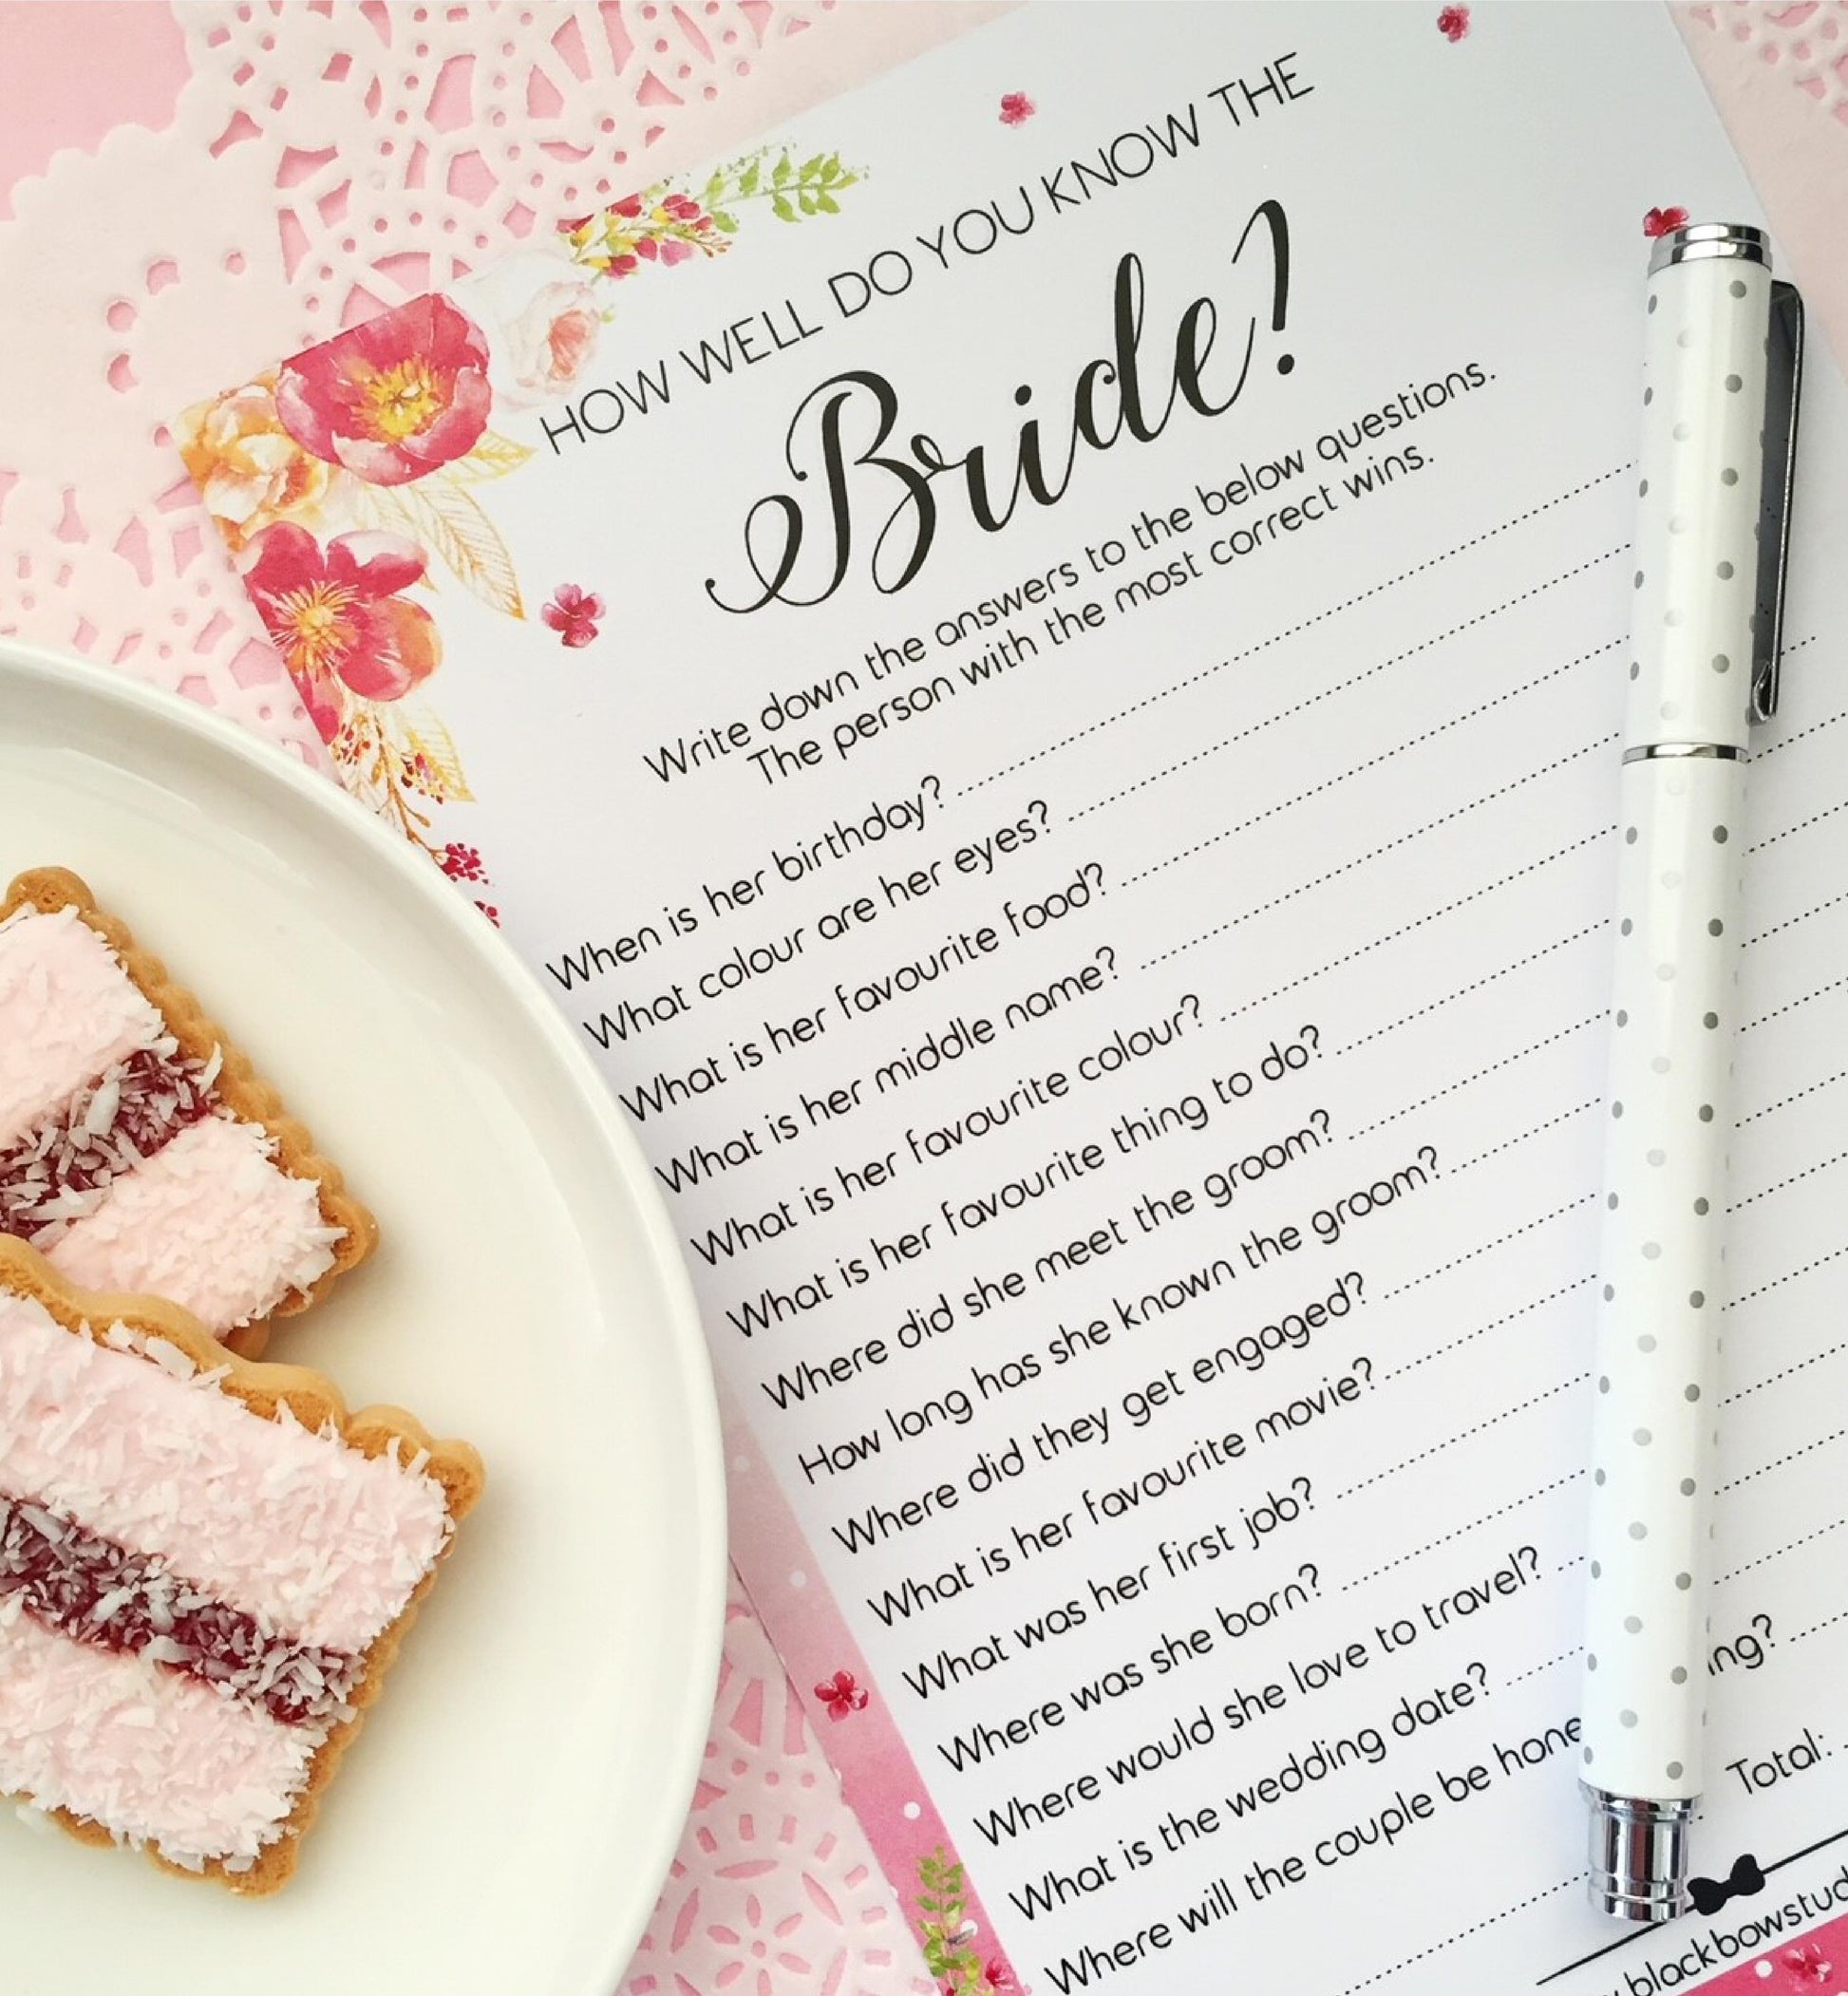 HOW WELL DO YOU KNOW THE
Bride?
Write down the answers to the below questions.
The person with the most correct wins.
When is her birthday?
What colour are her eyes?
What is her favourite food?
What is her middle name?
What is her favourite colour?
What is her favourite thing to do?
Where did she meet the groom?
How long has she known the groom?
Where did they get engaged?
What is her favourite movie?
What was her first job?
Where was she born?
Where would she love to travel?
What is the wedding date?
Where will the couple be hone ing?
Total:
blackbowstud